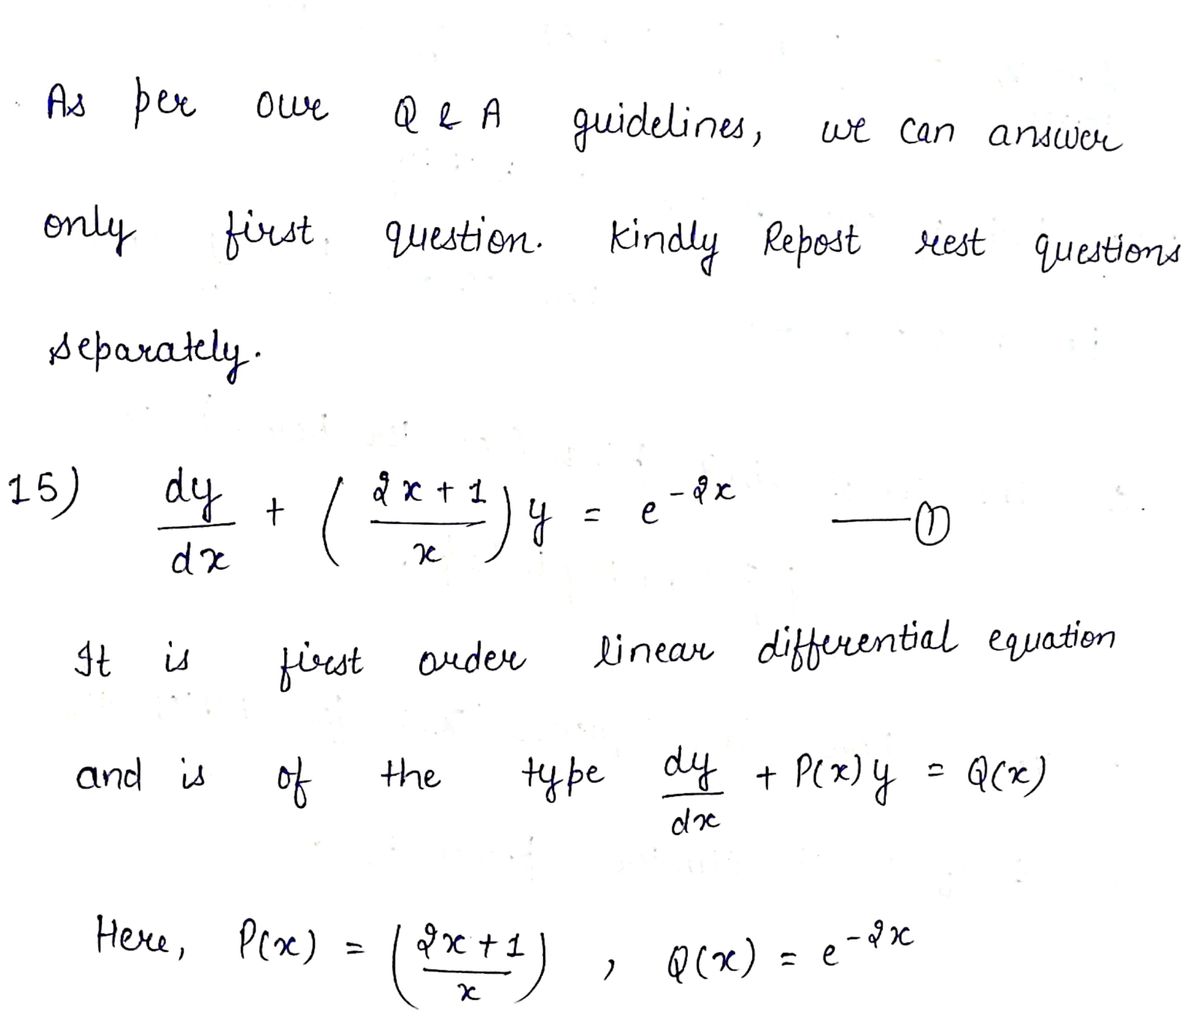 As per our Q & A guidelines, we can answer
only first question. Kindly Repost rest questions
separately.
15) dy/dx + (2x+1/x)y = e^-2x —①
It is first order linear differential equation
and is of the type dy/dx + P(x)y = Q(x)
Here, P(x) = (2x+1/x), Q(x) = e^-2x